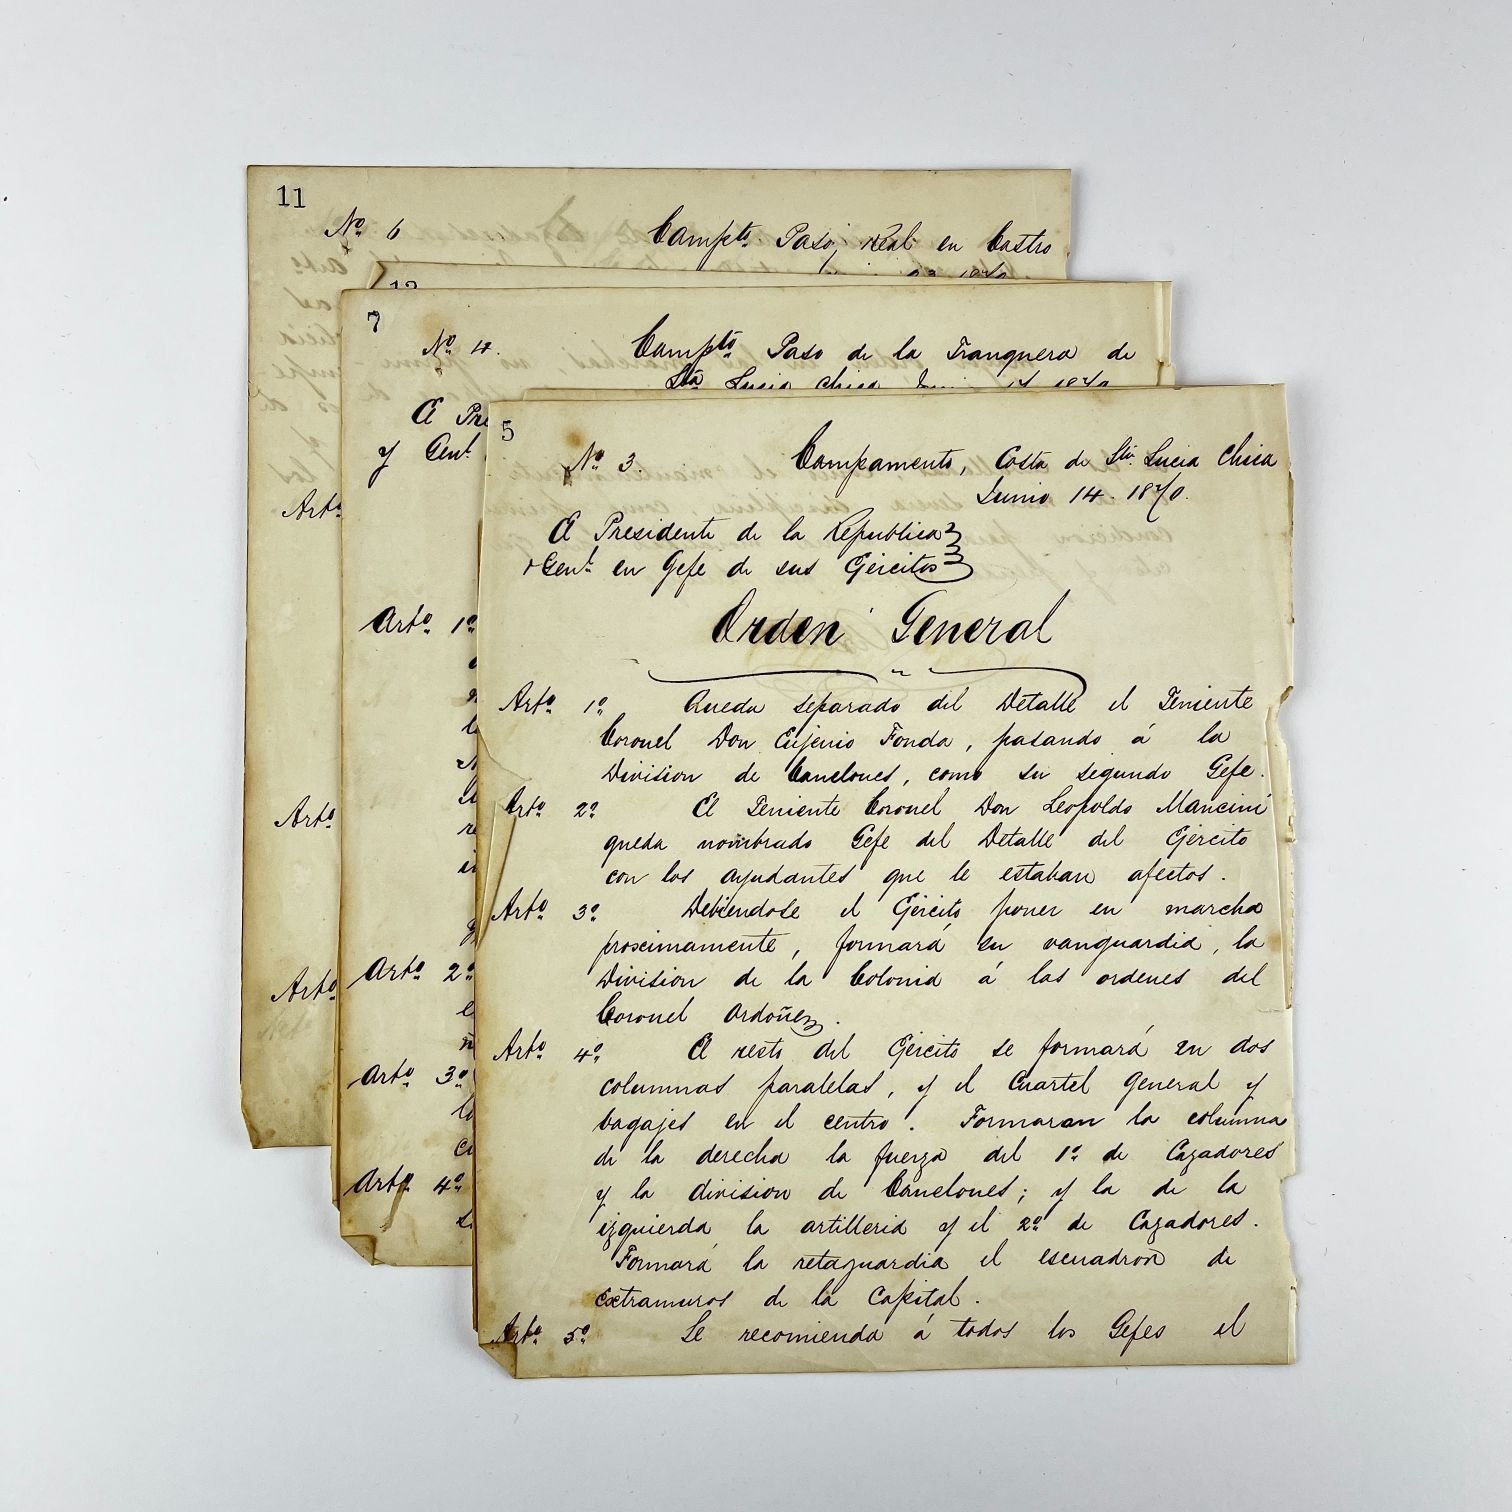 11
Nº 6 Campto Paso Real en Castro
12
7
Nº 4. Campto Paso de la Tranquera de
Sta Lucia Chica Junio 14 1870
El Pre
y Genl
Arto
Arto 1º
Arto
Arto 2º
Arto
Arto 3º
Arto 4º
5
Nº 3. Campamento, Costa de Sta Lucia Chica
Junio 14. 1870.
El Presidente de la Republica
y Genl en Gefe de sus Gercitos
Orden General
Arto 1º Queda separado del Detalle el Teniente
Coronel Don Eujenio Fonda, pasando á la
Division de Canelones, como su segundo Gefe.
Arto 2º El Teniente Coronel Don Leopoldo Mancini
queda nombrado Gefe del Detalle del Gercito
con los ayudantes que le estaban afectos.
Arto 3º Debiendose el Gercito poner en marcha
proscimamente, formará en vanguardia, la
Division de la Colonia á las ordenes del
Coronel Ordoñez.
Arto 4º El resto del Gercito se formará en dos
columnas paralelas, y el Cuartel General y
bagajes en el centro. Formaran la columna
de la derecha la fuerza del 1º de Cazadores
y la division de Canelones; y la de la
izquierda la artilleria y el 2º de Cazadores.
Formará la retaguardia el escuadron de
extramuros de la Capital.
Arto 5º Se recomienda á todos los Gefes el